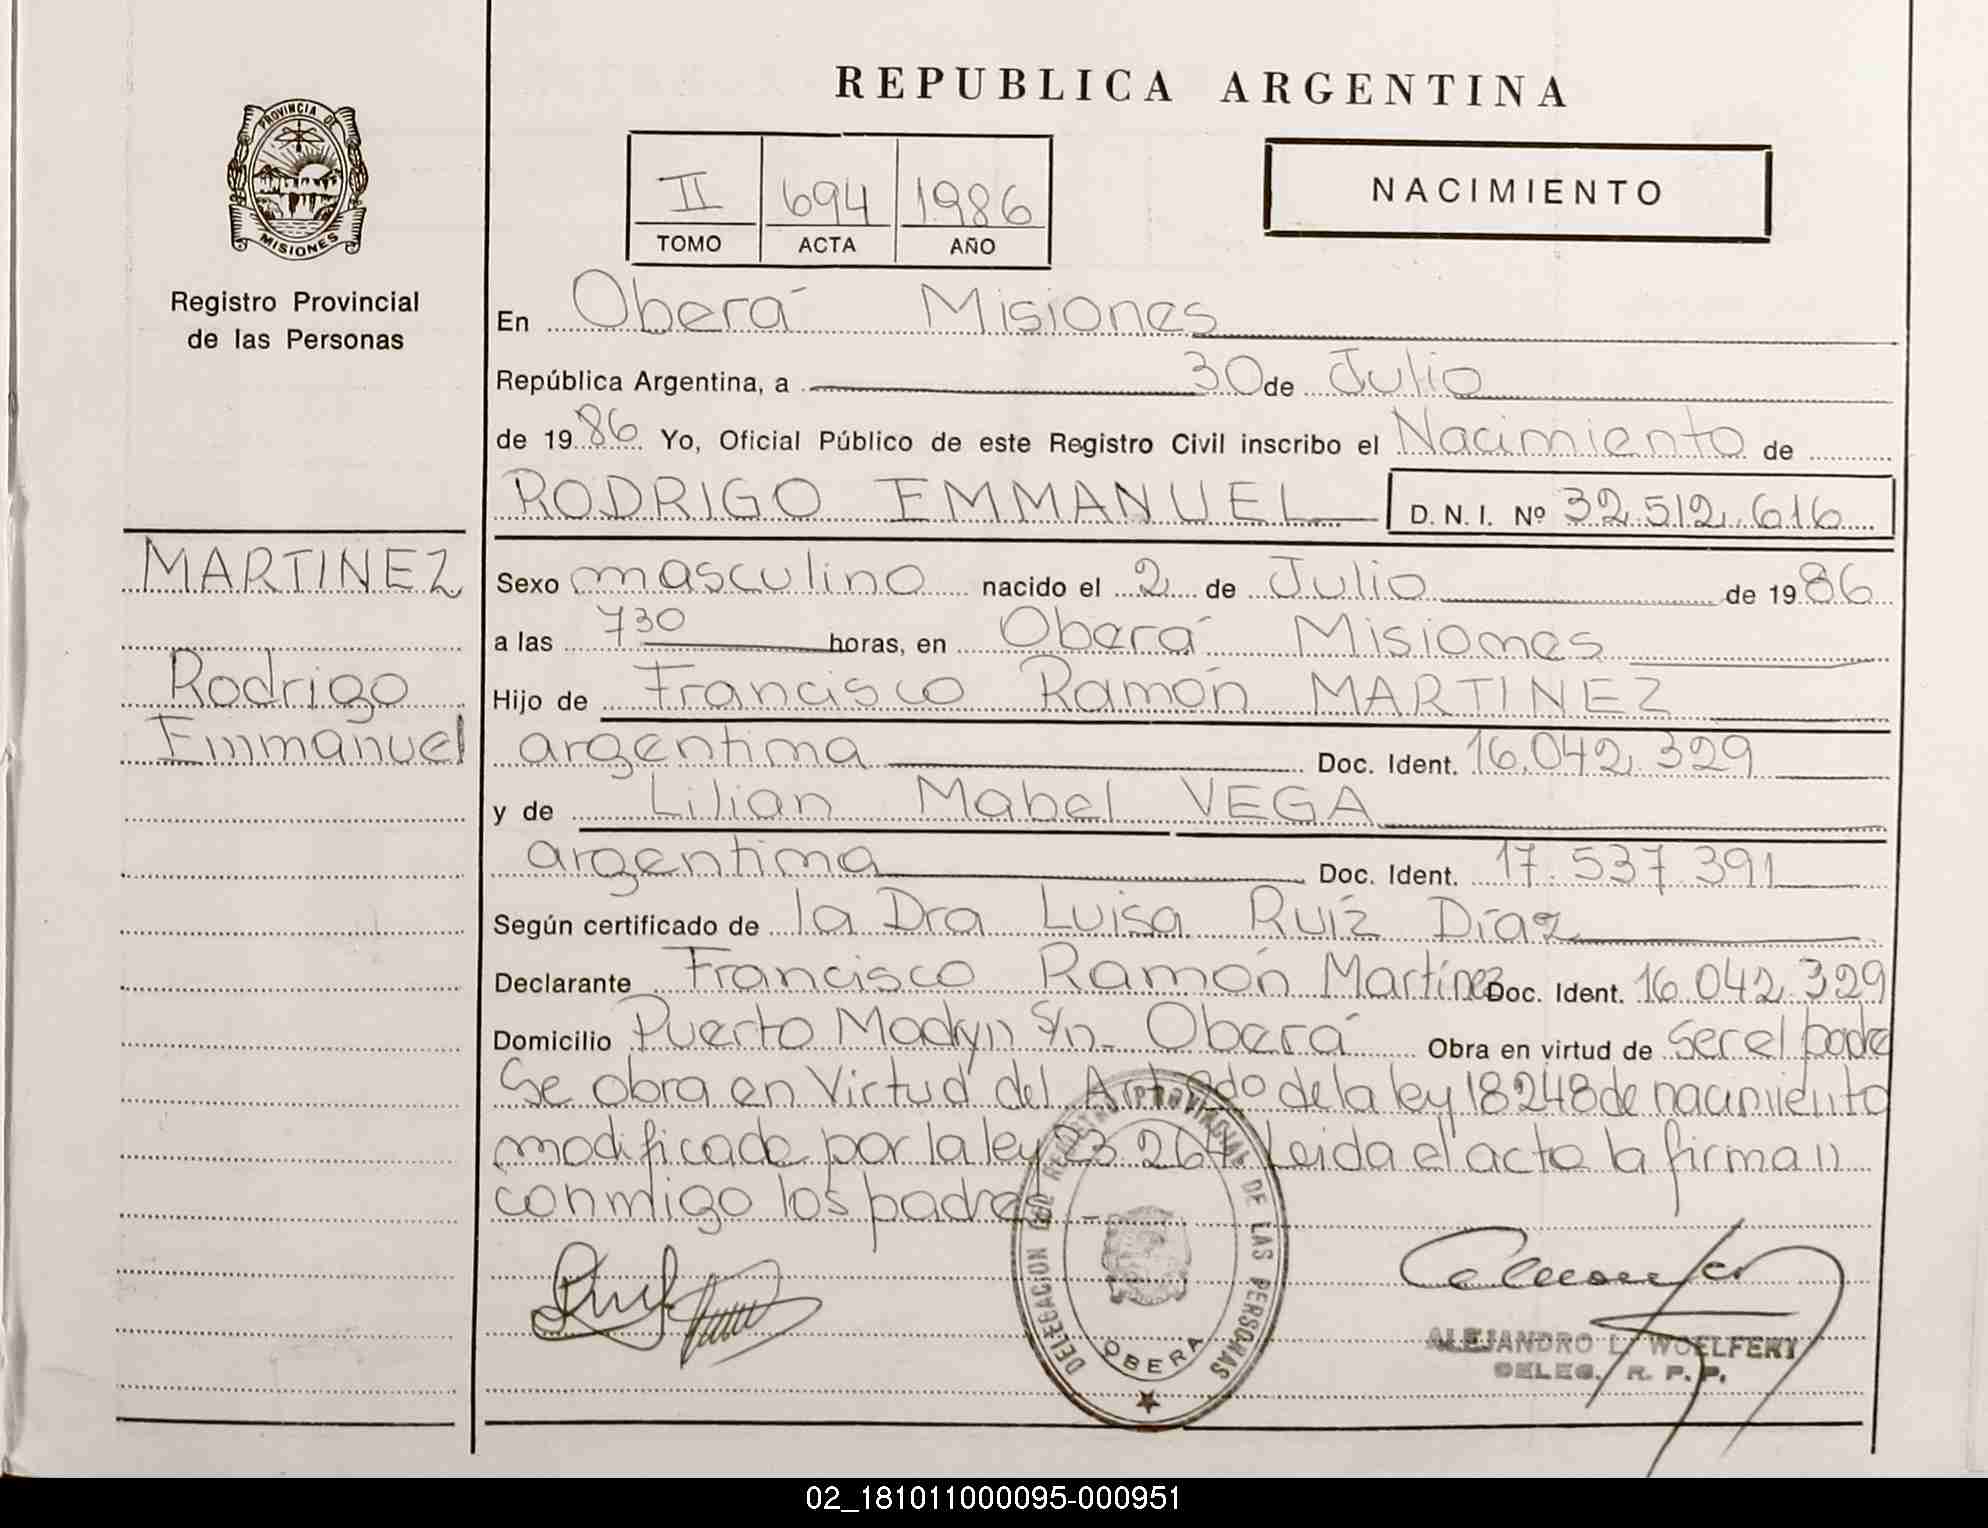 REPUBLICA ARGENTINA
PROVINCIA DE MISIONES
Registro Provincial
de las Personas
II 694 1986
TOMO ACTA AÑO
NACIMIENTO
En Oberá Misiones
República Argentina, a 30 de Julio
de 1986 Yo, Oficial Público de este Registro Civil inscribo el Nacimiento de
RODRIGO EMMANUEL D. N. I. Nº 32.512.616
MARTINEZ
Rodrigo
Emmanuel
Sexo masculino nacido el 2 de Julio de 1986
a las 730 horas, en Oberá Misiones
Hijo de Francisco Ramón MARTINEZ
argentina Doc. Ident. 16.042.329
y de Lilian Mabel VEGA
argentina Doc. Ident. 17.537.391
Según certificado de la Dra Luisa Ruíz Díaz
Declarante Francisco Ramón Martínez Doc. Ident. 16.042.329
Domicilio Puerto Madryn s/n- Oberá Obra en virtud de ser el padre
Se obra en Virtud del de la ley 18248 de nacimiento
modificado por la ley 23.264 Leida el acta la firman
conmigo los padres
DELEGACION DEL REGISTRO PROVINCIAL DE LAS PERSONAS
OBERA
ALEJANDRO L. WOELFERT
DELEG. R. P. P.
02_181011000095-000951